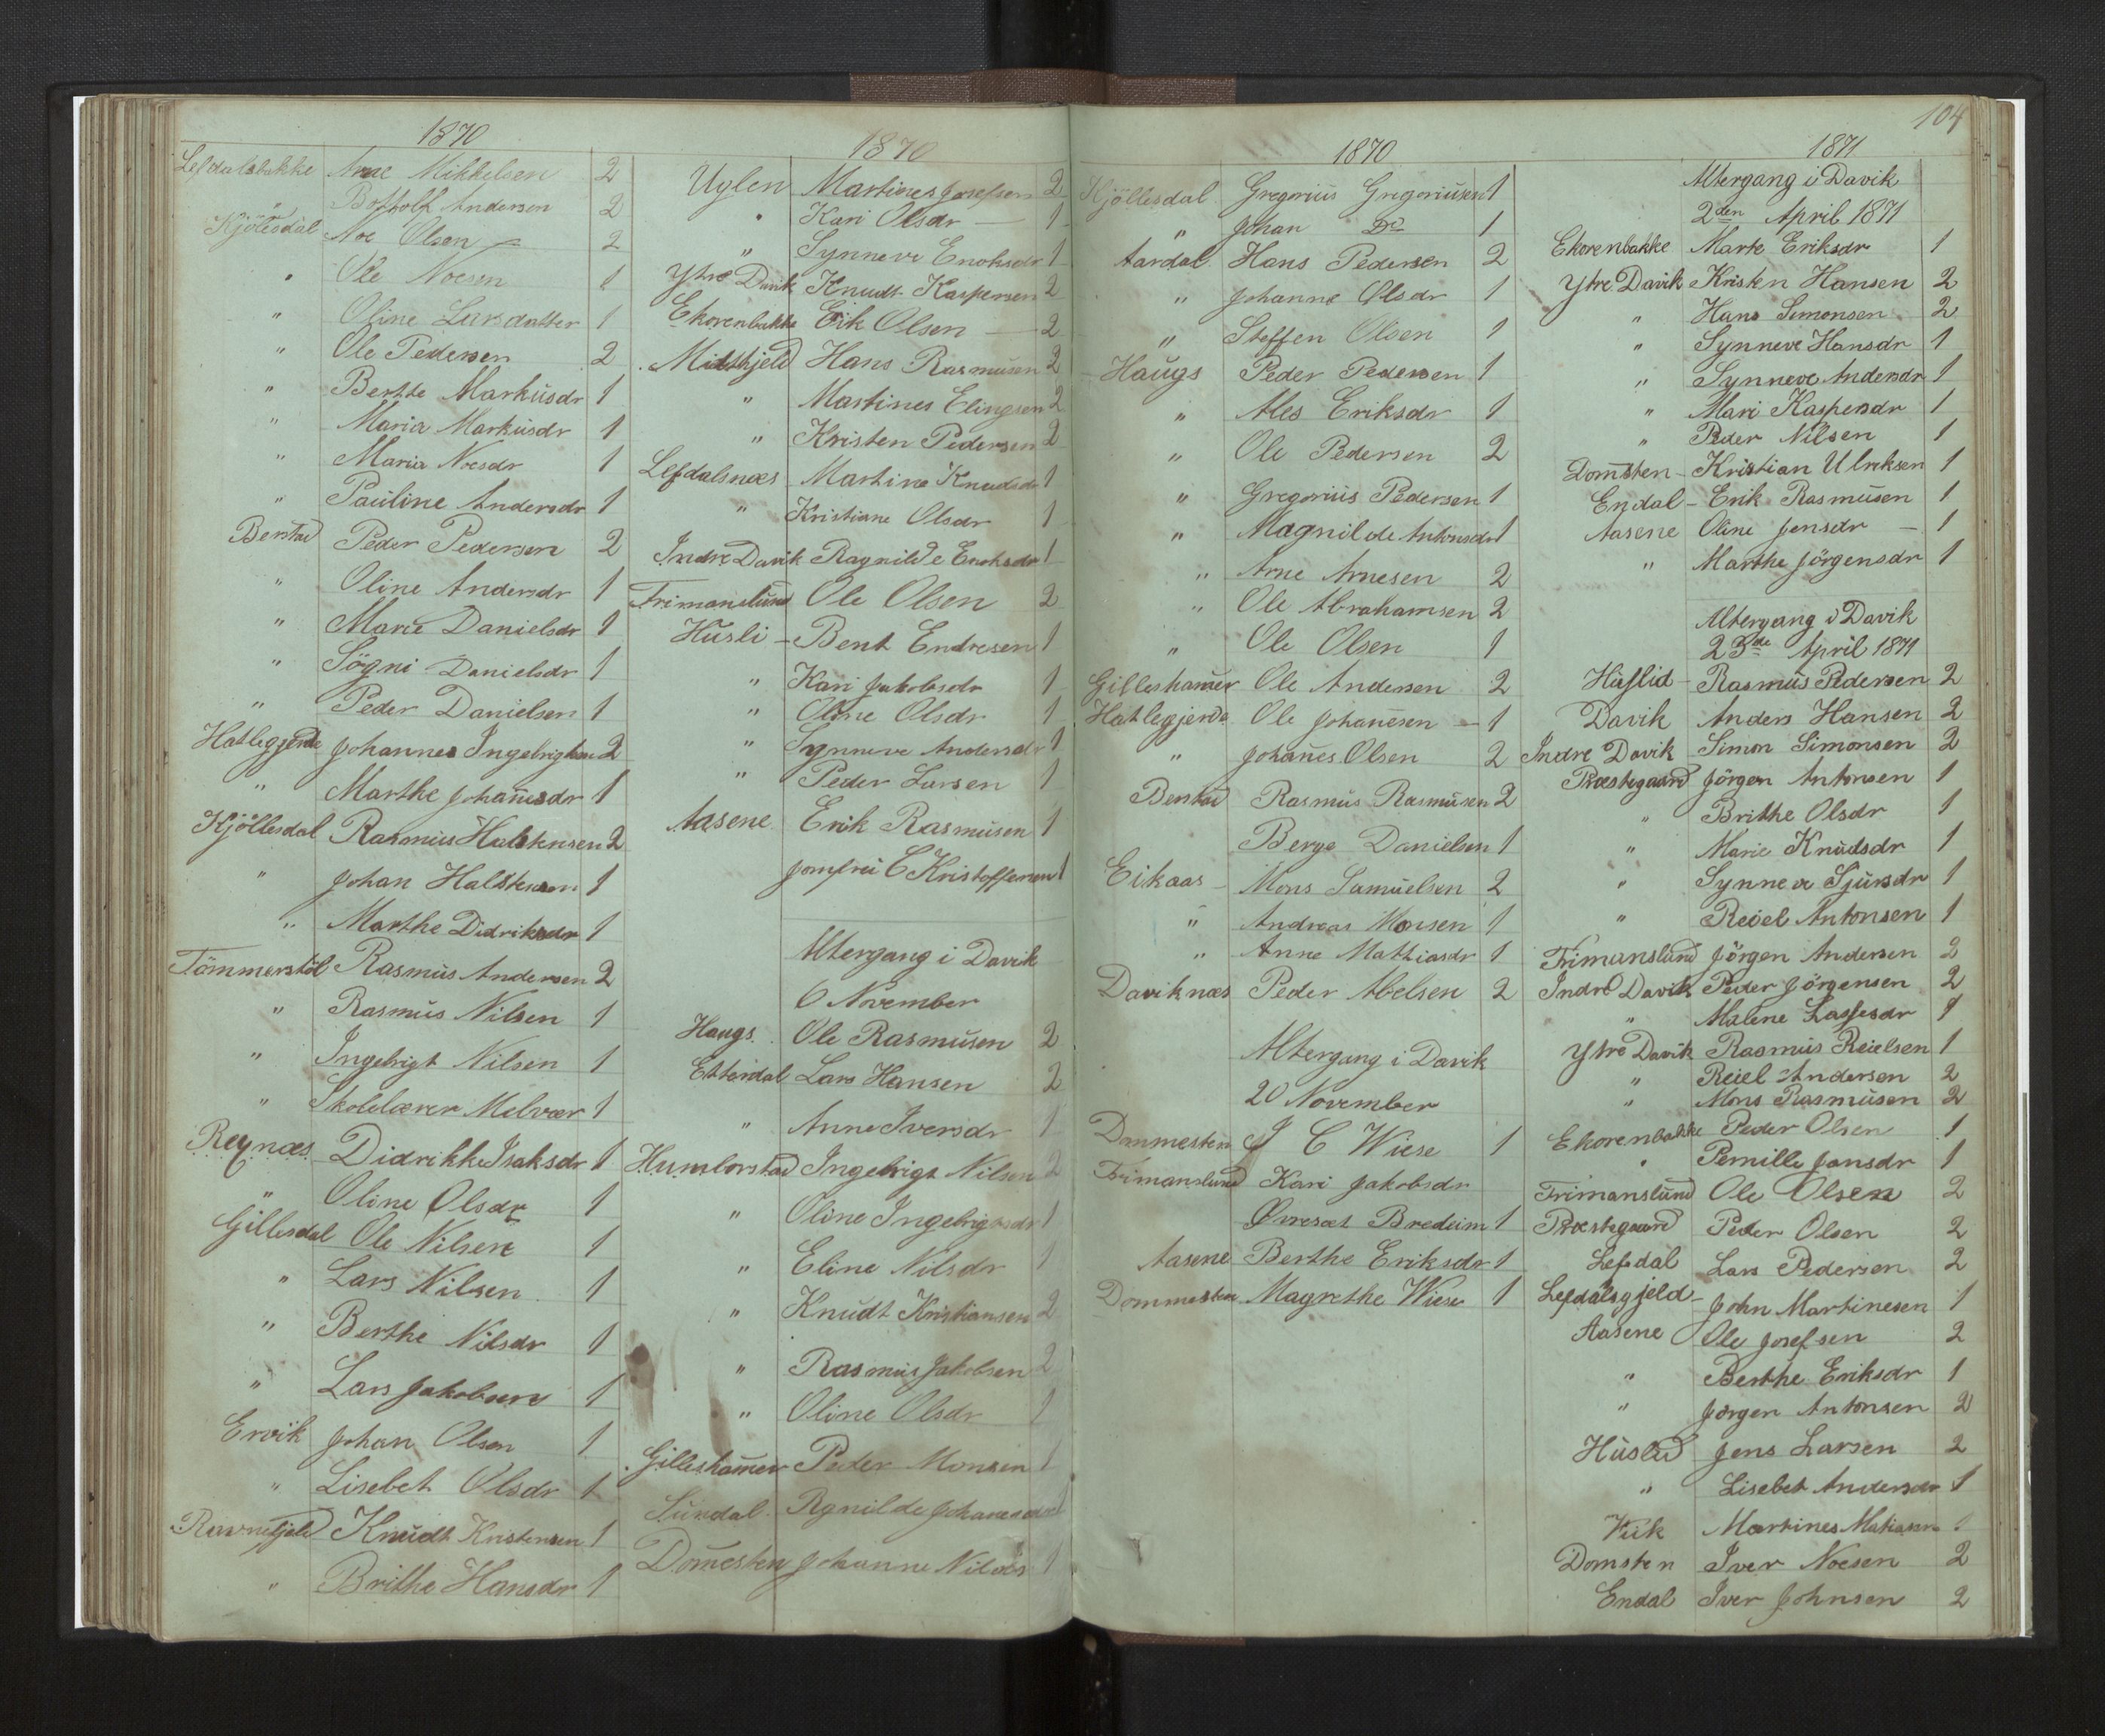 1870
Lefdalsbakke Arne Mikkelsen 2
" Bottolf Andersen 2
Kjölesdal Noe Olsen 2
" Ole Noesen 1
" Oline Larsdatter 1
" Ole Pedersen 2
" Berthe Markusdr 1
" Maria Markusdr 1
" Maria Noesdr 1
" Pauline Andersdr 1
Bentad Peder Pedersen 2
" Oline Andersdr 1
" Marie Danielsdr 1
" Sögni Danielsdr 1
" Peder Danielsen 1
Hatlegjerde Johannes Ingebrigtsen 2
" Marthe Johannesdr 1
Kjöllesdal Rasmus Halstensen 2
" Johan Halstensen 1
" Marthe Didriksdr 1
Tömmerstöl Rasmus Andersen 2
" Rasmus Nilsen 1
" Ingebrigt Nilsen 1
" Skolelærer Melvær 1
Reynæs Didrikke Isaksdr 1
" Oline Olsdr 1
Gillesdal Ole Nilsen 1
" Lars Nilsen 1
" Berthe Nilsdr 1
" Lars Jakobsen 1
Ervik Johan Olsen 1
" Lisebet Olsdr 1
Ravnefjeld Knudt Kristensen 1
" Brithe Hansdr 1
1870
Uglen Martines Josefsen 2
" Kari Olsdr — 1
" Synneve Enoksdr 1
Ytre Davik Knudt Kaspersen 2
Ekorenbakke Eik Olsen — 2
Midthjeld Hans Rasmusen 2
" Martines Elingsen 2
" Kristen Pedersen 2
Lefdalsnæs Martine Knudsdr 1
" Kristiane Olsdr 1
Indre Davik Ragnilde Enoksdr 1
Frimanslund Ole Olsen 2
Husli - Bent Endresen 1
" Kari Jakobsdr 1
" Oline Olsdr 1
" Synneve Andersdr 1
" Peder Larsen 1
Aasene Erik Rasmusen 1
Jomfru C Kristoffersen 1
Altergang i Davik
6 November
Haugs Ole Rasmusen 2
Etterdal Lars Hansen 2
" Anne Iversdr 1
Humborstad Ingebrigt Nilsen 2
" Oline Ingebrigtsdr 1
" Eline Nilsdr 1
" Knudt Kristiansen 2
" Rasmus Jakobsen 2
" Oline Olsdr 1
Gilleshamer Peder Monsen 1
Sundal Rgnilde Johanesdr 1
Domesten Johanne Nilsdr 1
1870
Kjöllesdal Gregorius Gregoriusen 1
" Johan Do 1
Aardal Hans Pedersen 2
" Johanne Olsdr 1
" Steffen Olsen 1
Haugs Peder Pedersen 1
" Ales Eriksdr 1
" Ole Pedersen 2
" Gregorius Pedersen 1
" Magnilde Antonsdr 1
" Arne Arnesen 2
" Ole Abrahamsen 2
" Ole Olsen 1
Gilleshamer Ole Andersen 2
Hatlegjerde Ole Johanesen — 1
" Johanes Olsen 2
Bentad Rasmus Rasmusen 2
Berge Danielsen 1
Eikaas - Mons Samuelsen 2
" Andreas Monsen 1
" Anne Mathiasdr 1
Daviknæs Peder Abelsen 2
Altergang i Davik
20 November
Dommesten J C Wiese 1
Frimanslund Kari Jakobsdr
Örresæt Bredeim 1
Aasene Berthe Eriksdr 1
Dommesten Magrethe Wiese 1
104
1871
Altergang i Davik
2den April 1871
Ekorenbakke Mark Eriksdr 1
Ytre Davik Kristen Hansen 2
" Hans Simonsen 2
" Synneve Hansdr 1
" Synneve Andersdr 1
" Mari Kaspersdr 1
" Peder Nilsen 1
Domsten - Kristian Ulriksen 1
Endal - Erik Rasmusen 1
Aasene Oline Jensdr — 1
" Marthe Jörgensdr 1
Altergang i Davik
23de April 1871
Huslid - Rasmus Pedersen 2
Davik Anders Hansen 2
Indre Davik Simon Simonsen 2
Præstegaard Jörgen Antonsen 1
" Brithe Olsdr 1
" Marie Knudsdr 1
" Synneve Sjursdr 1
" Reiel Antonsen 1
Frimanslund Jörgen Andersen 2
Indre Davik Peder Jörgensen 2
" Malene Lassesdr 1
Ytre Davik Rasmus Reielsen 1
" Reiel Andersen 2
" Mons Rasmusen 2
Ekorenbakke Peder Olsen 1
" Pernille Jansdr 1
Frimanslund Ole Olsen 2
Præstegaard Peder Olsen 2
Lefdal Lars Pedersen 2
Lefdalsgjeld - John Martinesen 1
Aasene Ole Josefsen 2
" Berthe Eriksdr 1
" Jørgen Antonsen 2
Huslid Jens Larsen 2
" Lisebet Andersdr 1
Viik Martines Matiasen
Domsten Iver Noesen 2
Endal Iver Johnsen 2